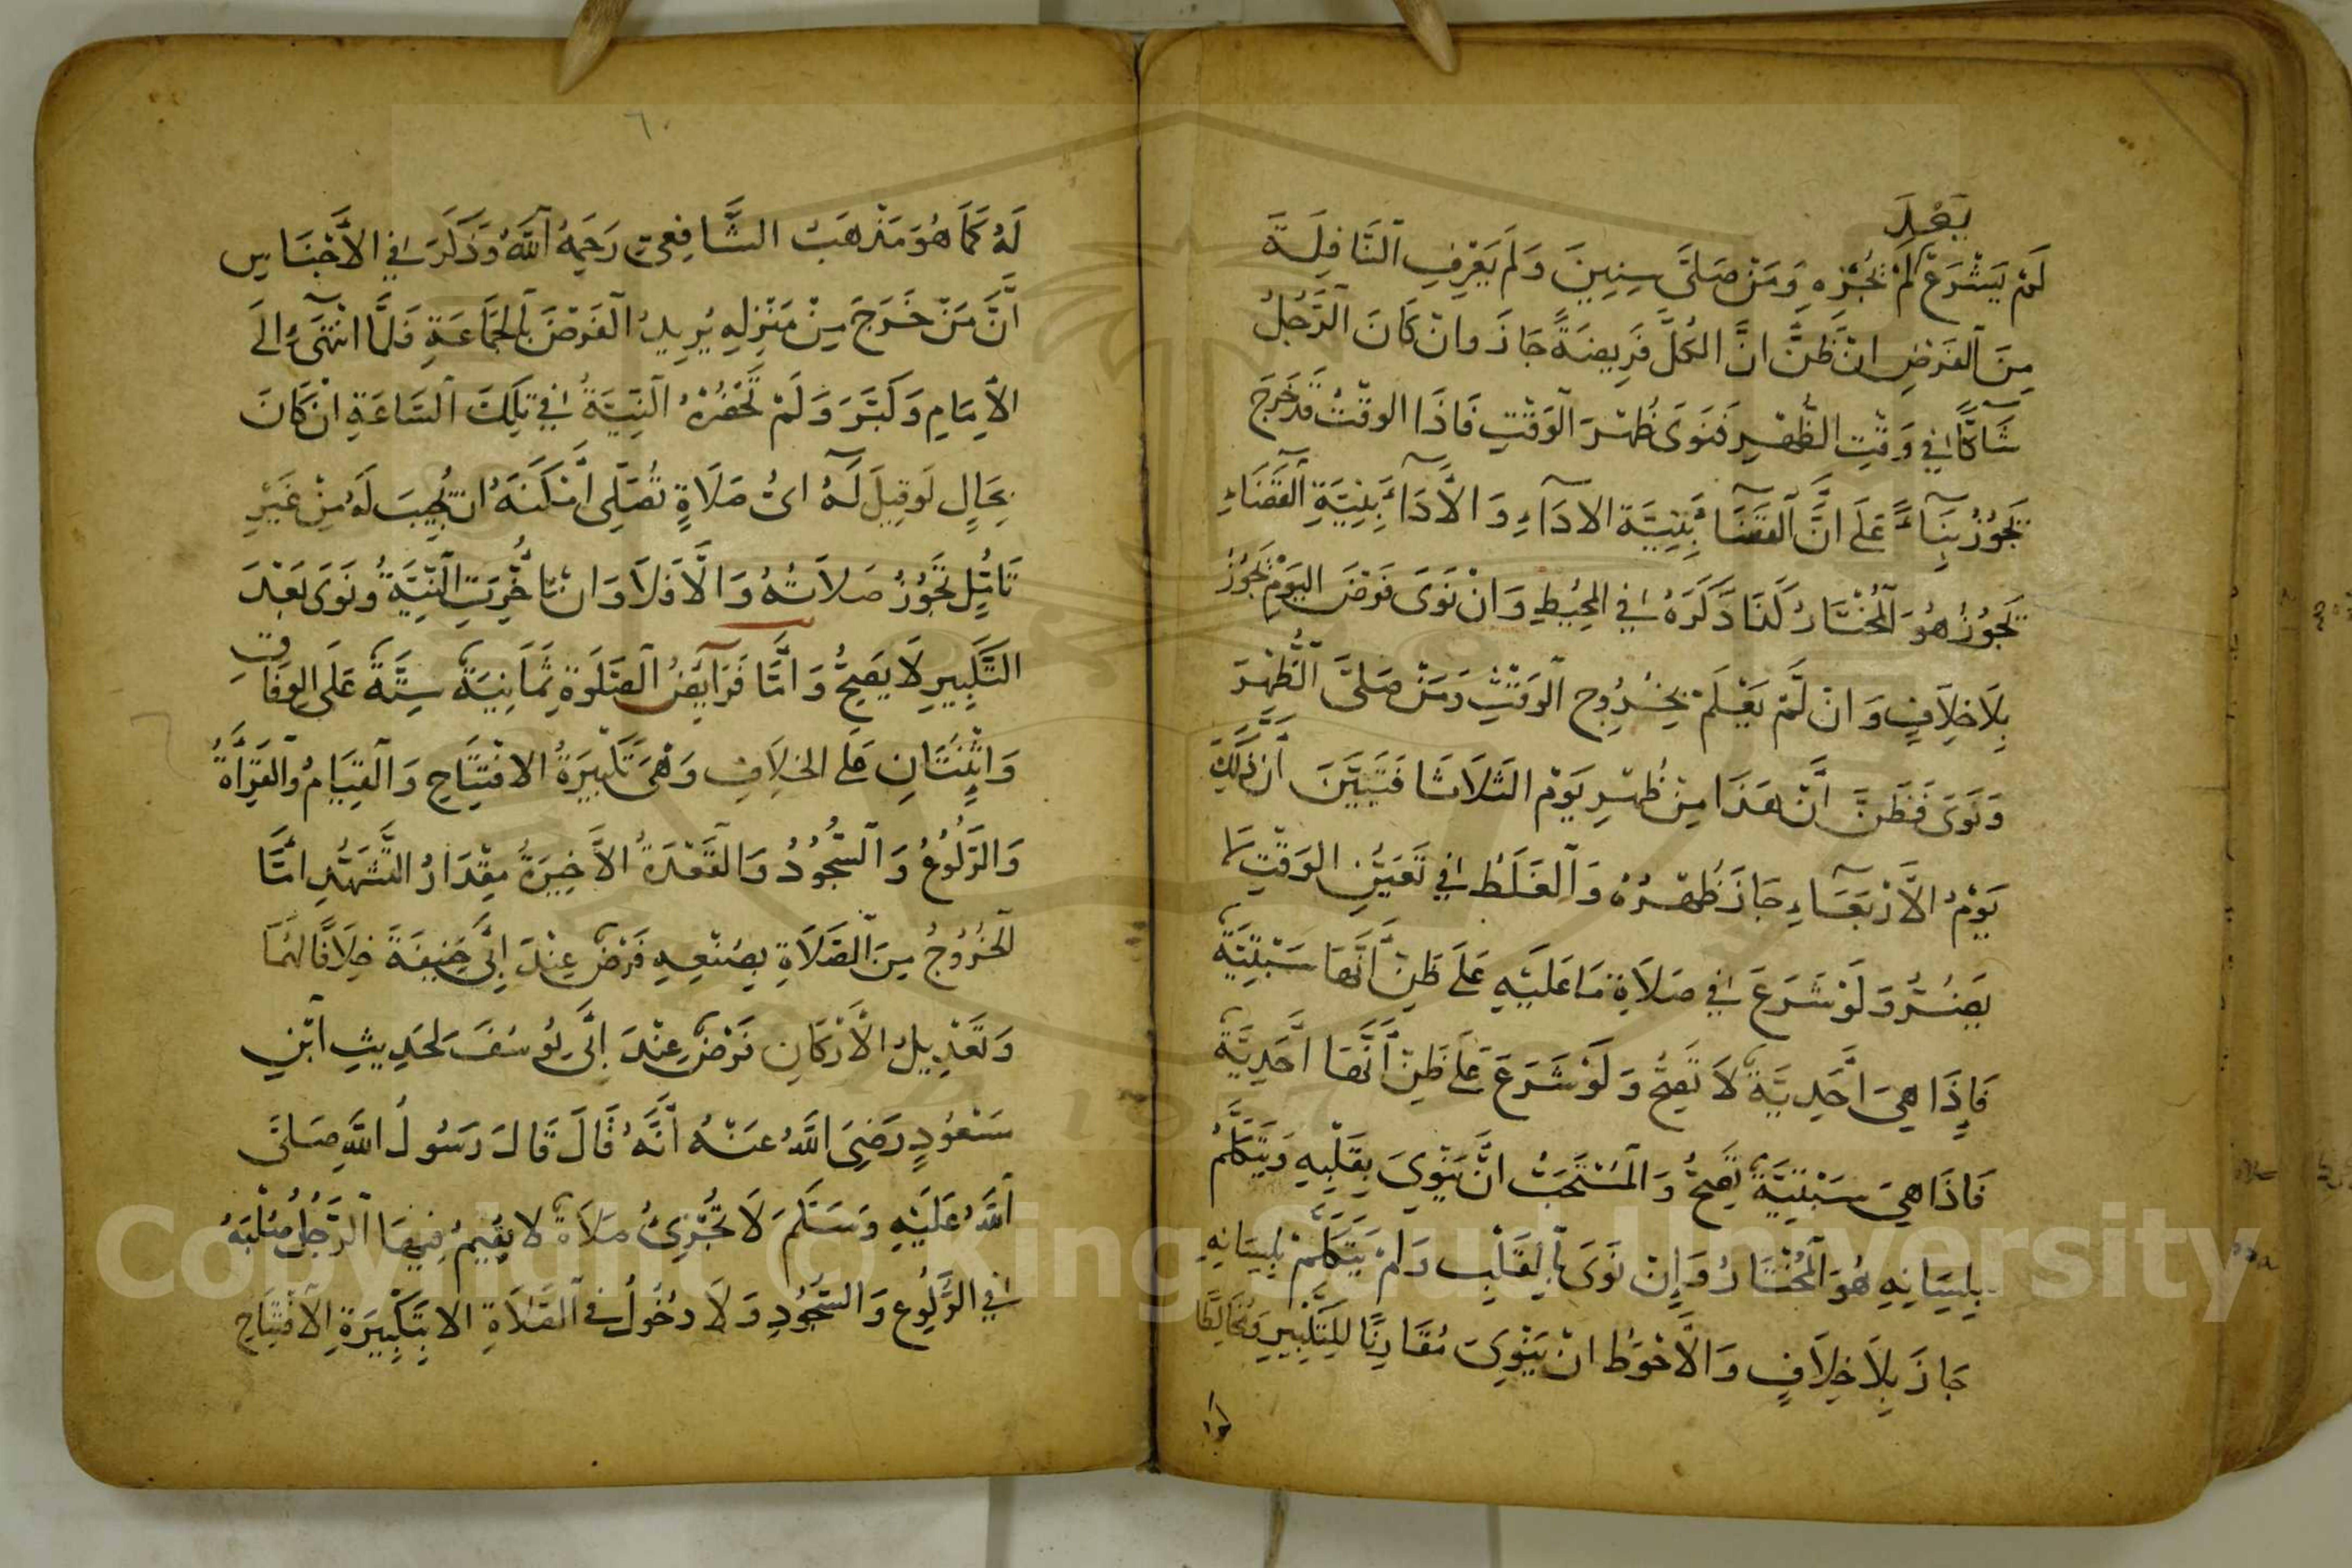 يَعْلَ
لَمْ يَشْرَعْ لَمْ يَجُزْهِ وَمَنْ صَلَّى سِنِينَ وَلَمْ يَعْرِفِ النَّافِلَةَ
مِنَ الْفَرْضِ انْ ظَنَّ انَّ الكُلَّ فَرِيضَةٌ جَازَ وانْ كَانَ الرَّجُلُ
شَآكًّا فِي وَقْتِ الظُّهْرِ فَنَوَى ظُهْرَ الْوَقْتِ فَاذَا الوقْتُ قَدْ خَرَجَ
يَجُوزُ بِنَآءً عَلَى انَّ الْقَضَآءَ بِنِيَّةِ الادَآءِ وَ الْأَدَآءَ بِنِيَّةِ الْقَضَآءِ
يَجُوزُ هُوَ الْمُخْتَارُ كَذَا ذَكَرَهُ فِي المُحِيْطِ وَانْ نَوَى فَرْضَ اليَوْمِ يَجُوزُ
بِلَا خِلَافٍ وَ انْ لَمْ يَعْلَمْ بِخُرُوجِ الْوَقْتِ وَمَنْ صَلَّى الظُّهْرَ
وَنَوَى فَظَنَّ أَنَّ هَذَا مِنْ ظُهْرِ يَوْمِ الثَلَاثَا فَتَبَيَّنَ أَنَّ ذَلِكَ
يَوْمُ الْأَرْبَعَآءِ جَازَ ظُهْرُهُ وَ الْغَلَطُ فِي تَعْيِينِ الوَقْتِ لَا
يَضُرُّ وَ لَوْ شَرَعَ فِي صَلَاةِ مَا عَلَيْهِ عَلَى ظَنِّ أَنَّهَا سَبْتِيَّةٌ
فَإِذَا هِيَ أَحَدِيَّةٌ لَا تَصِحُّ وَ لَوْ شَرَعَ عَلَى ظَنِّ أَنَّهَا أَحَدِيَّةٌ
فَاذَا هِيَ سَبْتِيَّةٌ تَصِحُّ وَ الْمُسْتَحَبُّ انْ يَنْوِيَ بِقَلْبِهِ وَيَتَكَلَّمُ
بِلِسَانِهِ هُوَ الْمُخْتَارُ وَإِنْ نَوَى بِالْقَلْبِ وَلَمْ يَتَكَلَّمْ بِلِسَانِهِ
جَازَ بِلَا خِلَافٍ وَ الْأَحْوَطُ انْ يَنْوِيَ مُقَارِنًا لِلتَّكْبِيرِ وَمُخَالِطًا
لَهُ كَمَا هُوَ مَذْهَبُ الشَّافِعِيِّ رَحِمَهُ اللَّهُ وَذَكَرَ فِي الْأَجْنَاسِ
أَنَّ مَنْ خَرَجَ مِنْ مَنْزِلِهِ يُرِيدُ الْفَرْضَ بِالْجَمَاعَةِ فَلَمَّا انْتَهَى إِلَى
الْإِمَامِ وَكَبَّرَ وَ لَمْ تَحْضُرْهُ النِّيَّةُ فِي تِلْكَ السَّاعَةِ انْ كَانَ
بِحَالٍ لَوْ قِيلَ لَهُ ايُّ صَلَاةٍ تُصَلِّي أَمْكَنَهُ انْ يُجِيبَ لَهُ مِنْ غَيْرِ
تَأَمُّلٍ تَجُوزُ صَلَاتُهُ وَ الَّا فَلَا وَ انْ تَأَخَّرَتِ النِّيَّةُ وَنَوَى بَعْدَ
التَّكْبِيرِ لَا يَصِحُّ وَ امَّا فَرَآيِضُ الصَّلَوةِ ثَمَانِيَةٌ سِتَّةٌ عَلَى الوِفَاقِ
وَ اثْنَتَانِ عَلَى الخِلَافِ وَهْيَ تَكْبِيرَةُ الافْتِتَاحِ وَ الْقِيَامُ وَالْقِرَأَةُ
وَ الرُّكُوعُ وَ السُّجُودُ وَالْقَعْدَةُ الْأَخِيرَةُ مِقْدَارُ التَّشَهُّدِ امَّا
الْخُرُوجُ مِنَ الصَّلَاةِ بِصُنْعِهِ فَرْضٌ عِنْدَ ابِي حَنِيفَةَ خِلَافًا لَهُمَا
وَ تَعْدِيلُ الْأَرْكَانِ فَرْضٌ عِنْدَ ابِي يُوسُفَ لِحَدِيثِ ابْنِ
مَسْعُودٍ رَضِيَ اللَّهُ عَنْهُ أَنَّهُ قَالَ قَالَ رَسُولُ اللَّهِ صَلَّى
اللَّهُ عَلَيْهِ وَسَلَّمَ لَا تُجْزِئُ صَلَاةٌ لَا يُقِيمُ فِيهَا الرَّجُلُ صُلْبَهُ
فِي الرُّكُوعِ وَ السُّجُودِ وَ لَا دُخُولُ فِي الصَّلَاةِ الا بِتَكْبِيرَةِ الِافْتِتَاحِ
Copyright © King Saud University